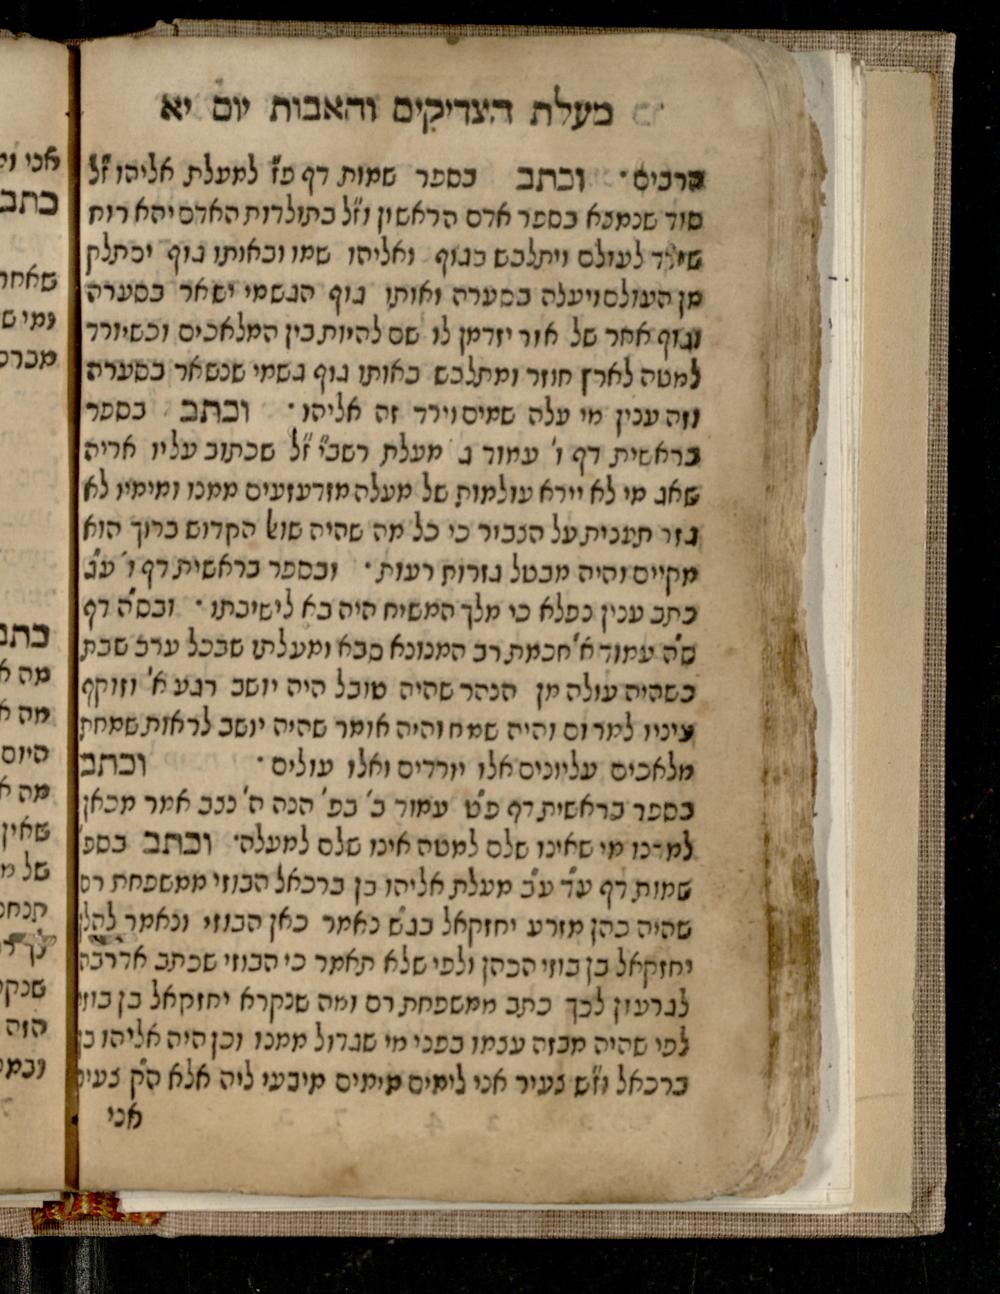 מעלת הצדיקים והאבות יום יא
הרבים· וכתב בספר שמות דף פ"ז למעלת אליהו ז"ל
סוד שנמצא בספר אדם הראשון וז"ל בתולדות האדם יהא רוח
שירד לעולם ויתלבש בגוף ואליהו שמו ובאותו גוף יסתלק
מן העולם ויעלה בסערה ואותו גוף הגשמי ישאר בסערה
וגוף אחר של אור יזדמן לו שם להיות בין המלאכים וכשיורד
למטה לארץ חוזר ומתלבש באותו גוף גשמי שנשאר בסערה
וזה ענין מי עלה שמים וירד זה אליהו· וכתב בספר
בראשית דף ו' עמוד ג' מעלת רשב"י ז"ל שכתוב עליו אריה
שאג מי לא יירא עולמות של מעלה מזדעזעים ממנו ומימיו לא
גזר תענית על הגבור כי כל מה שהיה שואל הקדוש ברוך הוא
מקיים והיה מבטל גזרות רעות· ובספר בראשית דף ו' ע"ג
כתב ענין נפלא כי מלך המשיח היה בא לישיבתו· ובס"ה דף
ס"ה עמוד א' חכמת רב המנונא סבא ומעלתו שבכל ערב שבת
כשהיה עולה מן הנהר שהיה טובל היה יושב רגע א' וזוקף
עיניו למרום והיה שמח והיה אומר שהיה יושב לראות שמחת
מלאכים עליונים אלו יורדים ואלו עולים· וכתב
בספר בראשית דף פ"ט עמוד ב' בפ' הנה ה' נצב אמר מכאן
למדנו מי שאינו שלם למטה אינו שלם למעלה· וכתב בספ'
שמות דף ע"ד ע"ב מעלת אליהו בן ברכאל הבוזי ממשפחת רם
שהיה כהן מזרע יחזקאל בג"ש נאמר כאן הבוזי ונאמר להלן
יחזקאל בן בוזי הכהן ולפי שלא תאמר כי הבוזי שכתב אדרבה
לגרעון לכך כתב ממשפחת רם ומה שנקרא יחזקאל בן בוזי
לפי שהיה מבזה עצמו בפני מי שגדול ממנו וכן היה אליהו בן
ברכאל וז"ש צעיר אני לימים מימים מיבעי ליה אלא ה"ק צעיר
אני